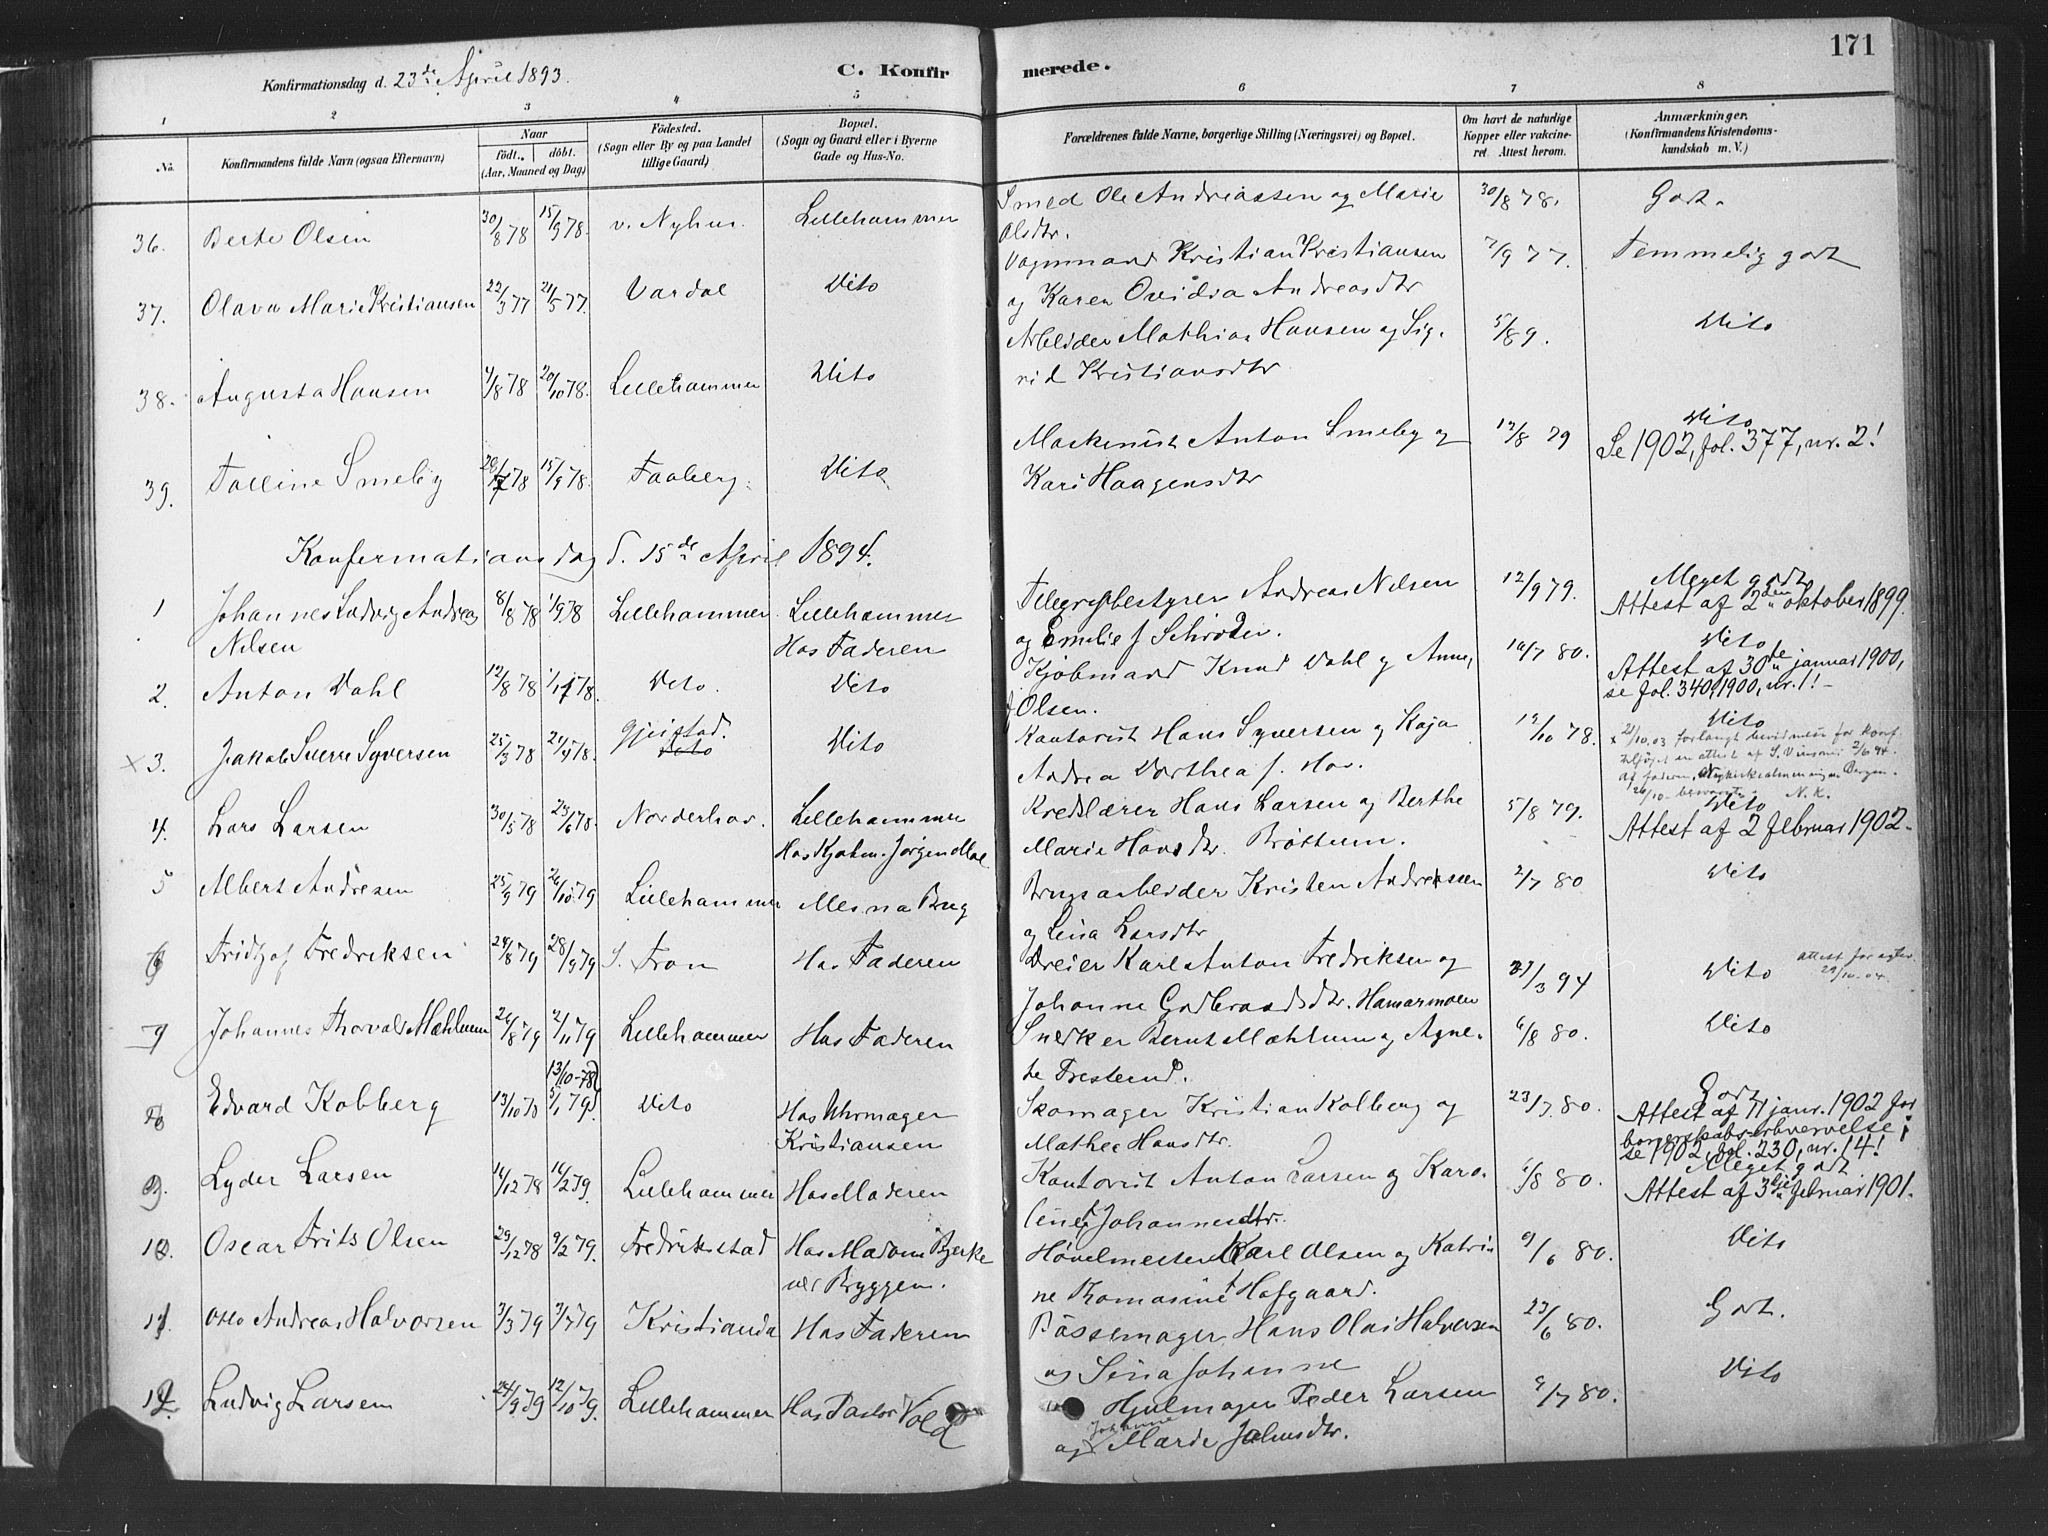 171
Konfirmationsdag d. 23de April 1893.
C. Konfirmerede.
1 2 3 4 5 6 7 8
No. Konfirmandens fulde Navn (ogsaa Efternavn)
Naar født. døbt. (Aar, Maaned og Dag)
Födested. (Sogn eller By og paa Landet tillige Gaard)
Bopæl. (Sogn og Gaard eller i Byerne Gade og Hus-No.
Forældrenes fulde Navne, borgerlige Stilling (Næringsvei) og Bopæl.
Om havt de naturlige Kopper eller vakcineret Attest herom.
Anmærkninger. (Konfirmandens Kristendomskundskab m. V.)
36. Berte Olsen 30/8 78 15/9 78. v. Nyhus. Lillehammer Smed Ole Andreassen og Marie 30/8 78. Godt.
Olsdtr.
37. Olava Marie Kristiansen 22/3 77 21/5 77. Vardal Dito Vognmand Kristian Kristiansen 7/9 77. Temmelig godt
og Karen Ovidia Andreasdtr
38. Augusta Hansen 4/8 78 20/10 78. Lillehammer Dito Arbeider Mathias Hansen og Sig- 5/8 9. Dito
rid Kristiansdtr
39. Talline Smeby 15/9 78. Faaberg. Dito Maskinist Anton Smeby og 12/8 79 Dito
Kari Haagensdtr
Se 1902, fol. 377, nr. 2!
Konfermationsdag d. 15de April 1894.
1 Johannes Ludvig Andreas 8/8 78 1/9 78 Lillehammer. Lillehammer Telegrafbestyrer Andreas Nilsen 12/9 79. Meget godt
Nilsen Hos Faderen og Emelie f. Schrøder. Attest af 2den oktober 1899.
2. Anton Dahl 12/8 78 Dito. Dito Kjøbmand Knud Dahl og Anne, 16/7 80. Dito
f Olsen. Attest af 30te januar 1900,
se fol. 340, 1900, nr. 1!
x 3. Jakob Sverre Syversen 25/3 78 Gjeistad. Dito Dito Kontorist Hans Syversen og Kaja 19/10 78. Dito
Andrea Dorthea f. Hov. x 21/10.03 forlangt bevidnelse for konf.
tilføjet en attest af S. Vinsnes 2/6 94.
af faderen, Nykirkealmenningen Bergen.
26/10 besvaret N.K.
4. Lars Larsen 30/5 78 23/6 78. Norderhov. Lillehammer Kredslærer Hans Larsen og Berthe 5/8 79. Dito
Hos Kjøbm. Jørgen Moe Marie Hansdtr. Brøttum. Attest af 2 februar 1902.
5 Albert Andresen 25/9 79 26/10 79 Lillehammer Mesna Brug Brugsarbeider Kristen Andreassen 2/7 80 Dito
og Lina Larsdtr
6 Fridtjof Fredriksen 24/8 79 28/9 79 S. Fron Hos Faderen Dreier Karl Anton Fredriksen og 31/3 94 Dito attest for egtes. 29/10-04.
Johanne Gudbrandsdtr. Hamarmoen
7 Johannes Thorvald Mæhlum 26/8 79 2/11 79 Lillehammer Hos Faderen Snedker Bernt Mæhlum og Agne- 6/8 80. Dito
te Fresterud.
8 Edvard Kolberg 13/10 78 13/10-78 5/1 79 Dito Hos Uhrmager Skomager Kristian Kolberg og 23/7 80. Godt
Kristiansen Mathea Hansdtr. Attest af 11 janr. 1902 for
borgerskabs-erhvervelse;
se 1902, fol. 230, nr. 14!
9. Lyder Larsen 14/12 78 16/2 79. Lillehammer Hos Moderen Kontorist Anton Larsen og Karo- 6/8 80. Meget godt
line Johannesdtr. Attest af 3dje februar 1901.
10. Oscar Frits Olsen 29/12 78 9/2 79. Fredrikstad Hos Madam Bjerke Høvelmester Karl Olsen og Katri 9/6 80. Dito
ved Bryggen. ne Thomasine Hofgaard.
11. Otto Andreas Halvorsen 3/3 79 3/7 79 Kristiania Hos Faderen Bøssemager Hans Olai Halvorsen 23/6 80. Godt.
og Lina Johanne
12. Ludvig Larsen 24/9 79 12/10 79. Lillehammer Hos Pastor Vold Hjulmager Peder Larsen 9/7 80. Dito
og Johanne Marie Johnsdtr.